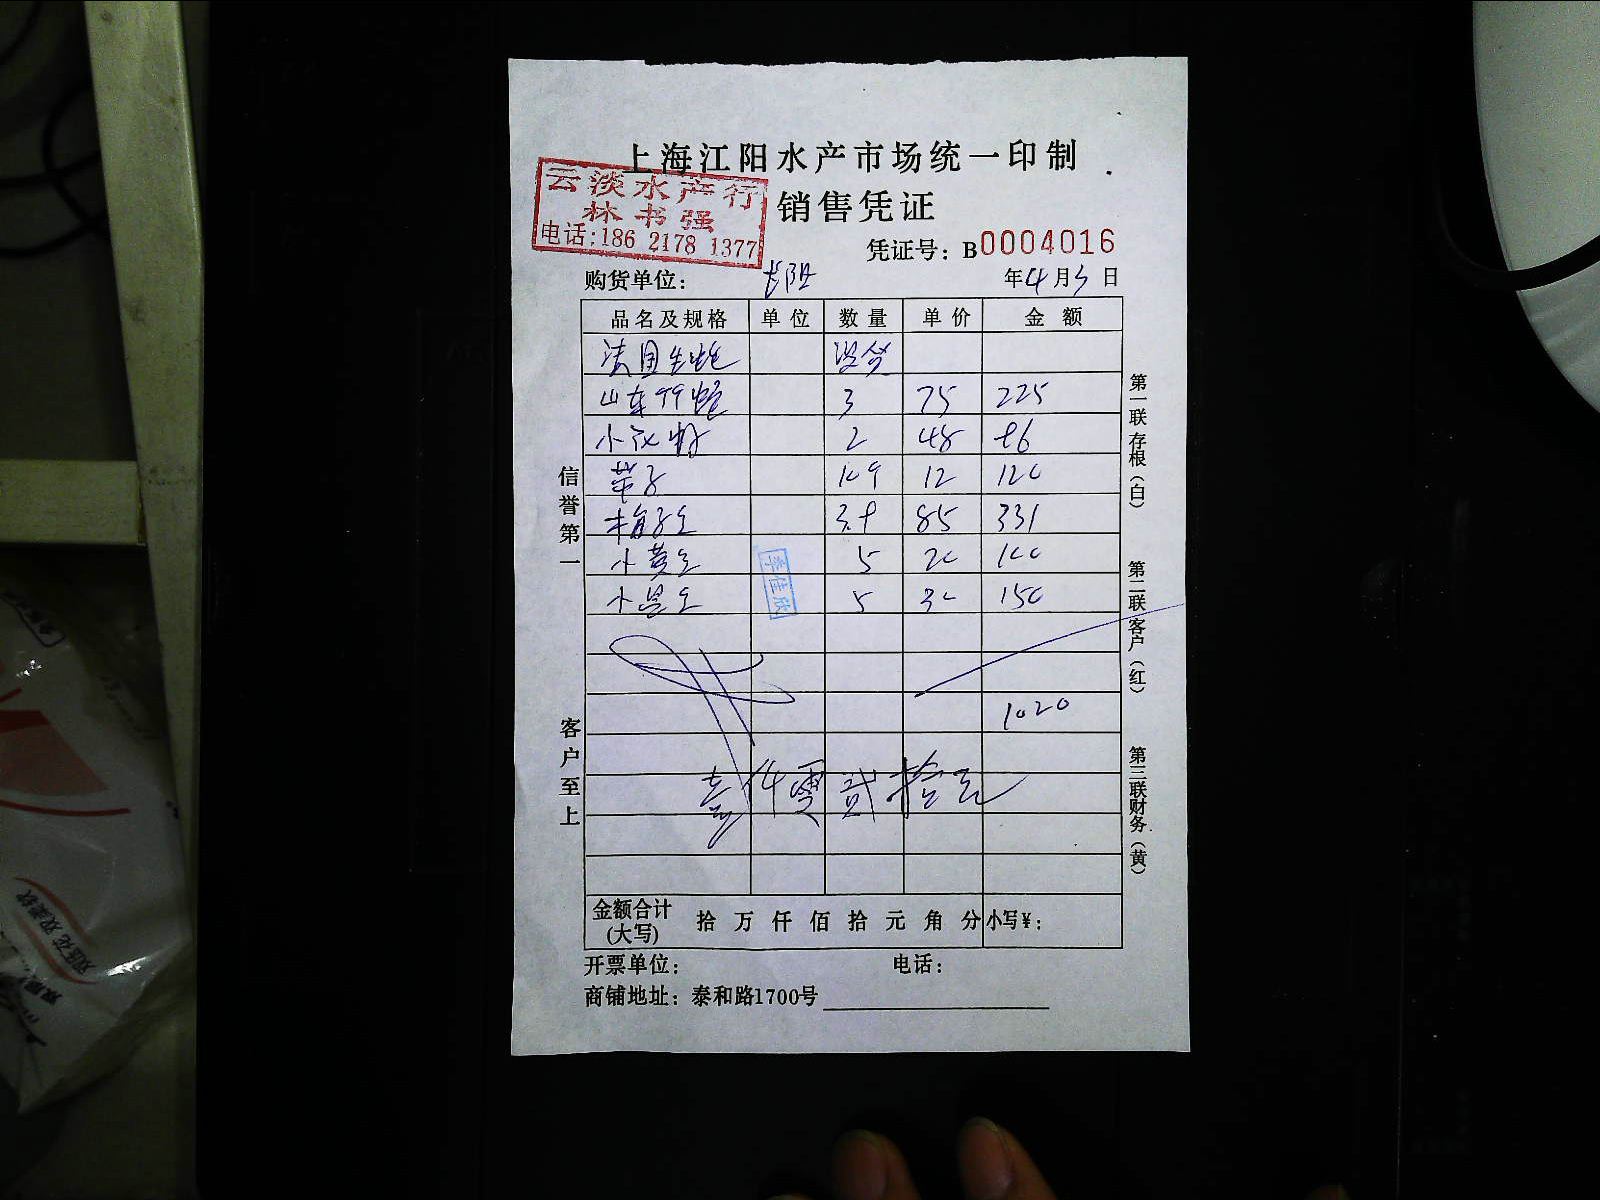 上海江阳水产市场统一印制
云淡水产行
林书强
电话:186 2178 1377
销售凭证
凭证号: B0004016
购货单位: 长阳
年4月3日
品名及规格 单位 数量 单价 金额
法国生蚝 没货
山东 3 75 225
小 2 48 96
10 12 120
梅子 3.9 85 331
小黄 5 20 100
小 5 30 150
李佳欣
1020
壹仟零贰拾元
金额合计(大写) 拾 万 仟 佰 拾 元 角 分 小写¥:
开票单位: 电话:
商铺地址: 泰和路1700号
信誉第一
客户至上
第一联 存根(白)
第二联 客户(红)
第三联财务(黄)